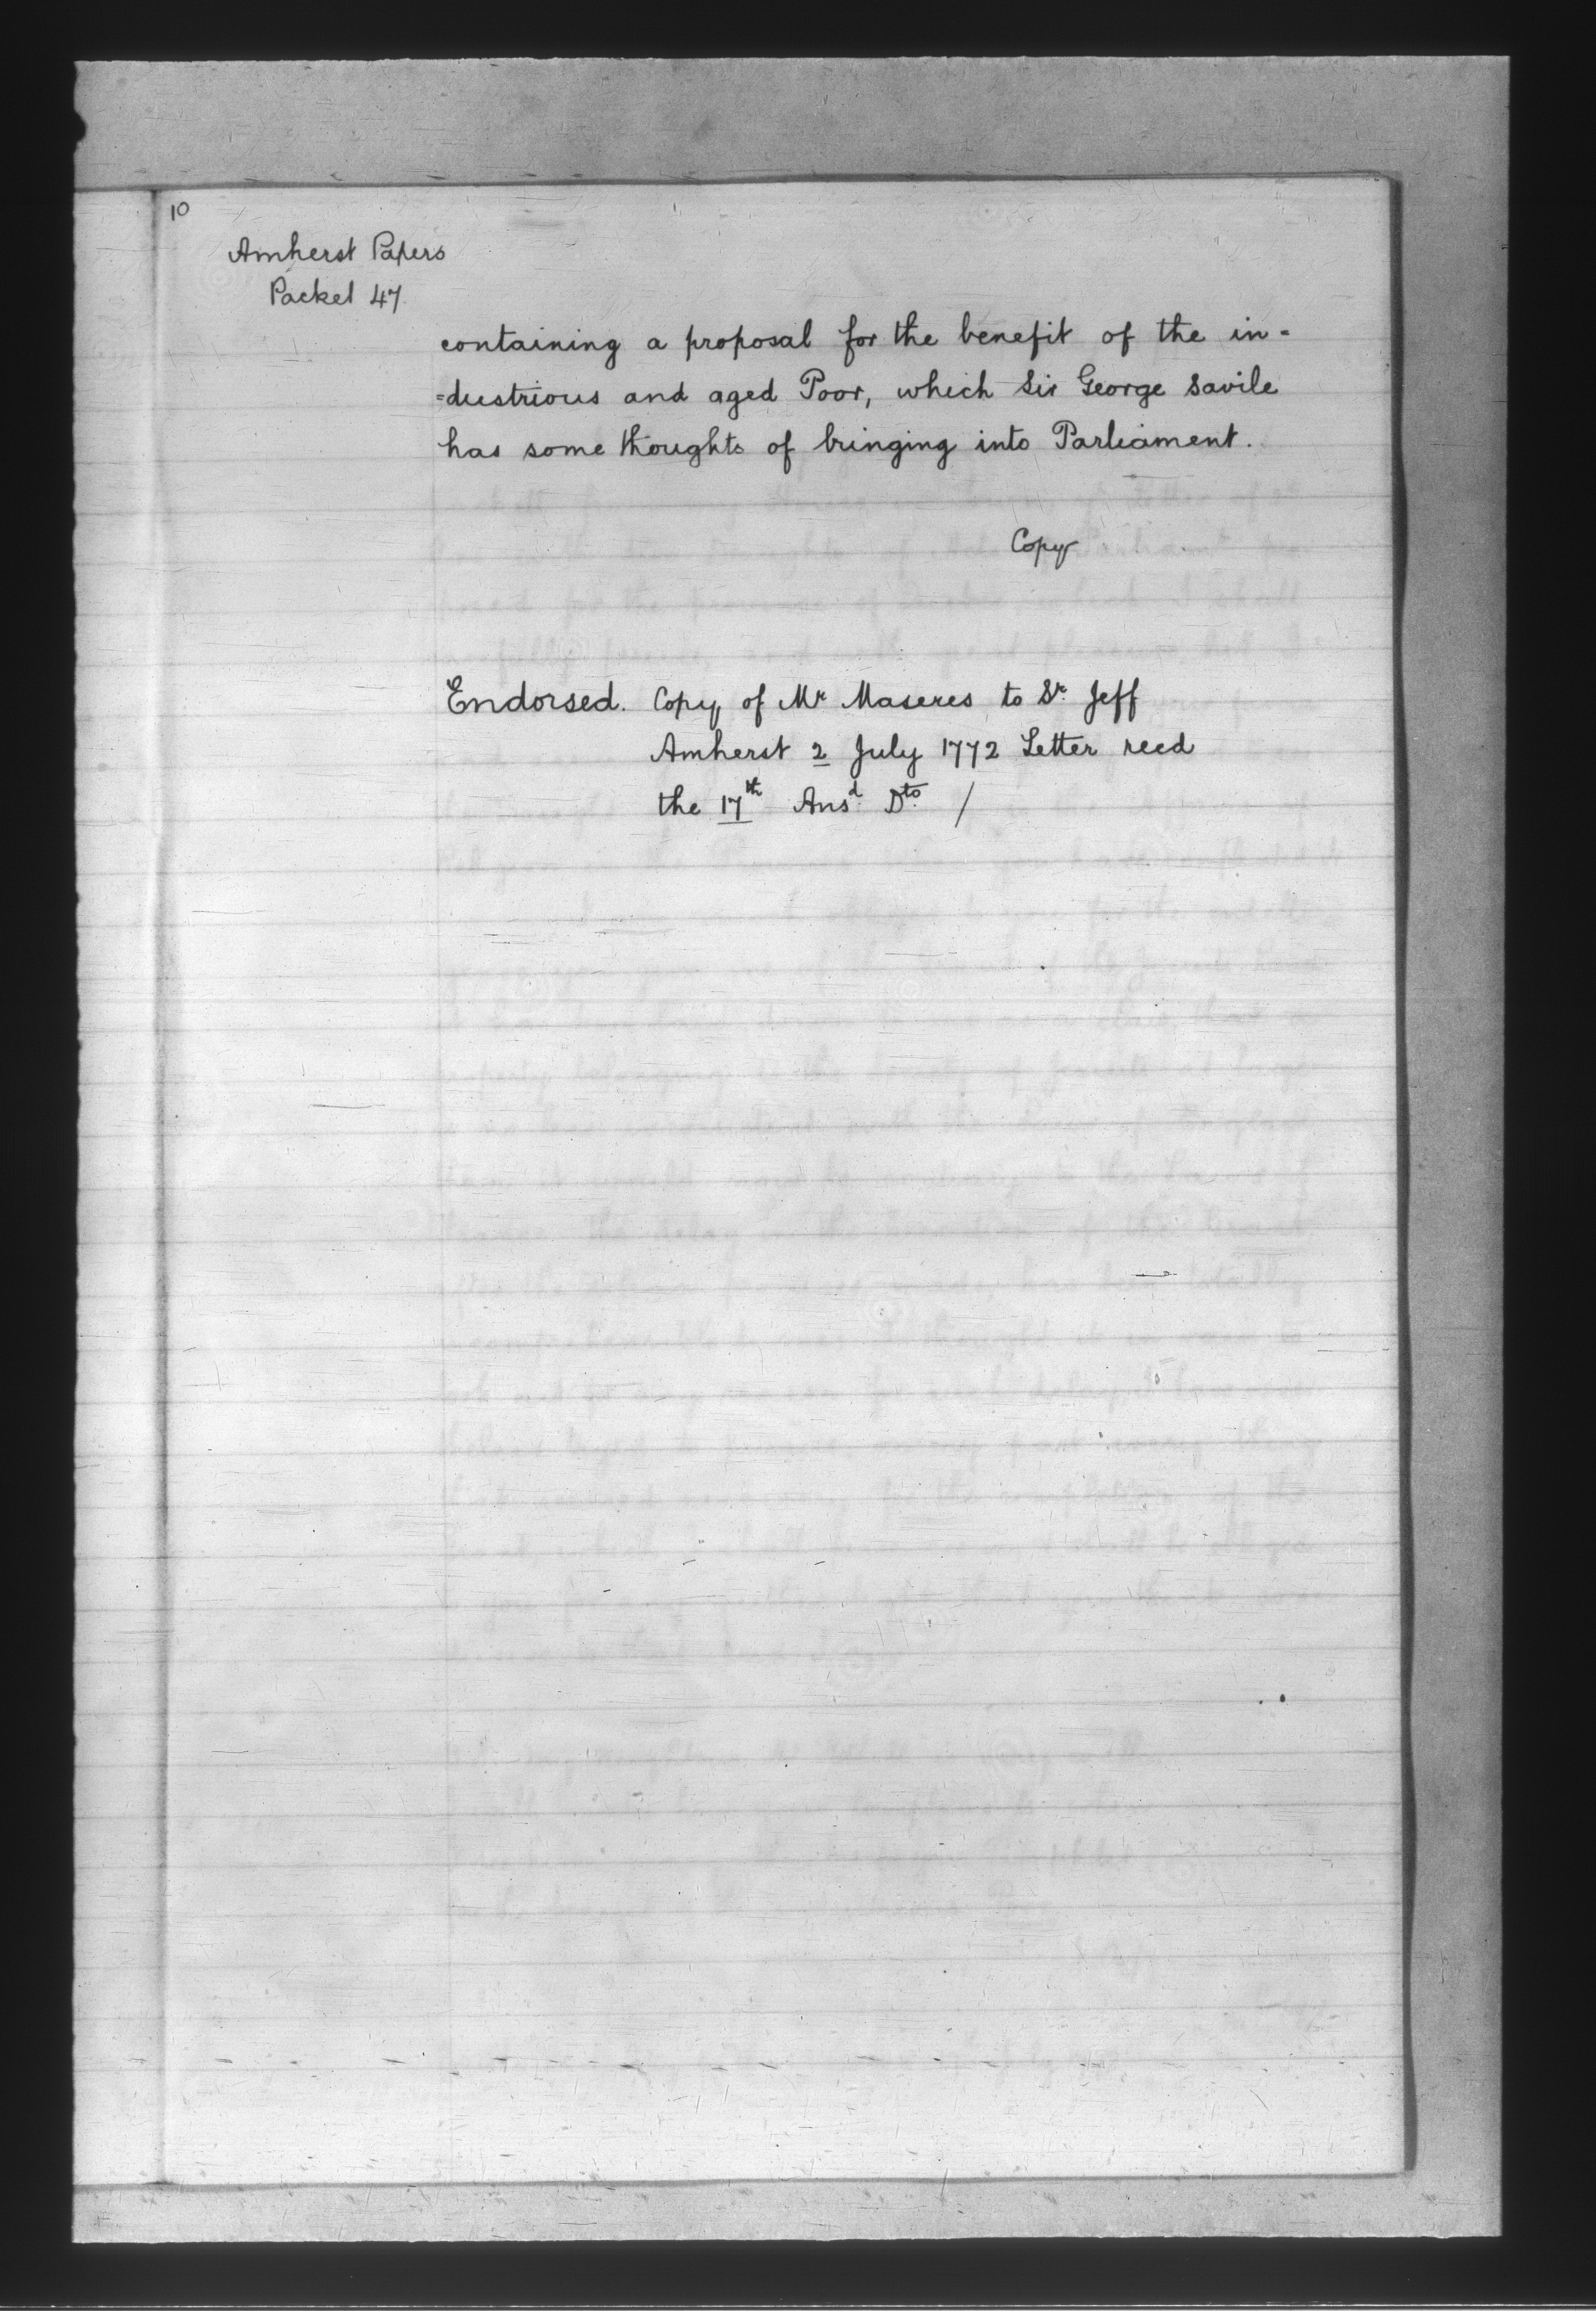 10
Amherst Papers
Packet 47
containing a proposal for the benefit of the in=
=dustrious and aged Poor, which Sir George Savile
has some thoughts of bringing into Parliament.
Copy
Endorsed. Copy of Mr Maseres to Sr. Jeff
Amherst 2 July 1772 Letter recd
the 17th Ansd. Dto. /